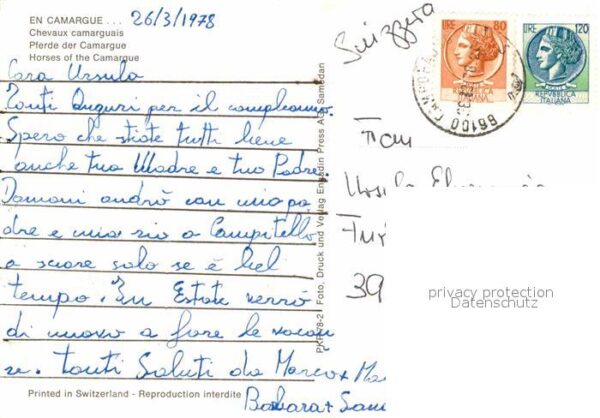 EN CAMARGUE ... 26/3/1978
Chevaux camarguais
Pferde der Camargue
Horses of the Camargue
Cara Ursula
Tanti Auguri per il compleanno.
Spero che stiate tutti bene
anche tua Madre e tuo Padre.
Domani andrò con mio pa
dre e mio zio a Campitello
a sciare solo se è bel
tempo. In Estate verrò
di nuovo a fare le vacan
ze. tanti Saluti da Marco +
Barbara +
Printed in Switzerland - Reproduction interdite
PKF 78-2 Foto, Druck und Verlag Engadin Press AG, Samedan
Svizzera
LIRE 80
REPUBBLICA
ITALIANA
LIRE 120
REPUBBLICA
ITALIANA
86100
Ursula
39
privacy protection
Datenschutz